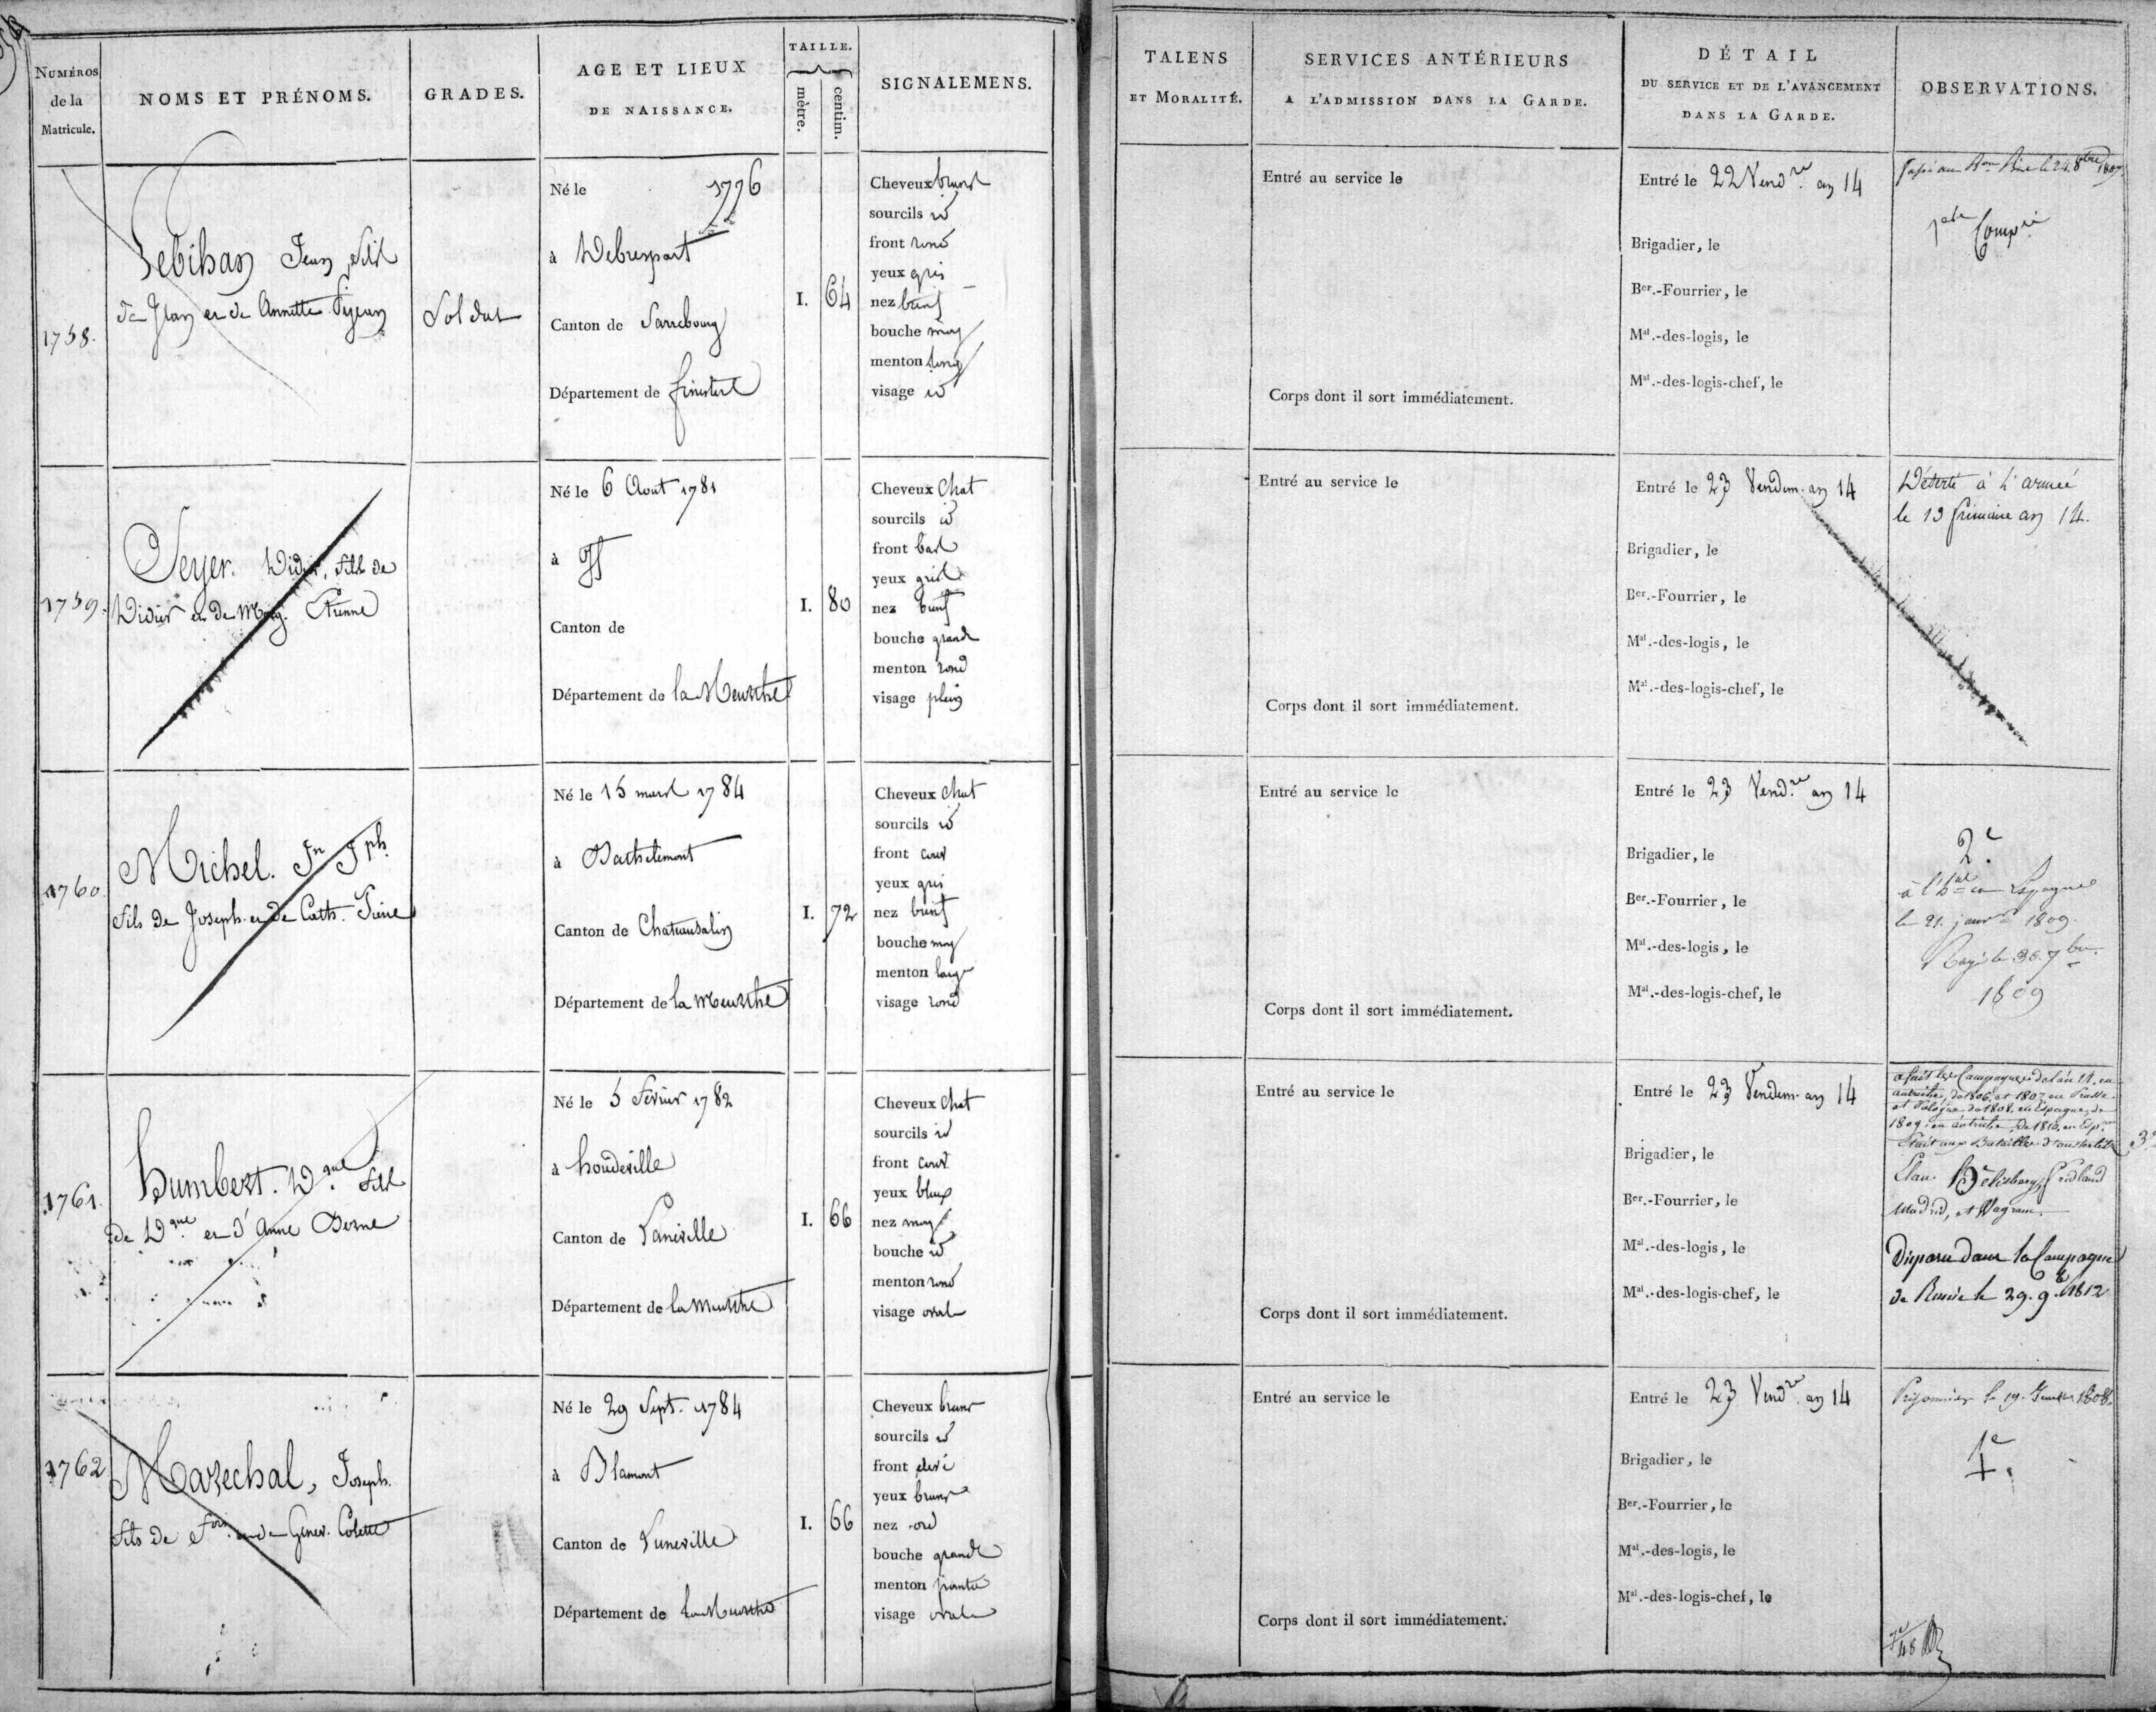 NUMÉROS
de la
Matricule.
NOMS ET PRÉNOMS.
GRADES.
AGE ET LIEUX
DE NAISSANCE.
TAILLE.
mètre.
centim.
SIGNALEMENS.
TALENS
ET MORALITÉ.
SERVICES ANTÉRIEURS
A L'ADMISSION DANS LA GARDE.
DÉTAIL
DU SERVICE ET DE L'AVANCEMENT
DANS LA GARDE.
OBSERVATIONS.
1758.
Lebihan Jean, fils
de Jean et de Annette
Soldat
Né le 1776
à
Canton de Sarrebourg
Département de finistere
1. 64
Cheveux bruns
sourcils id
front rond
yeux gris
nez
bouche moy
menton long
visage id
Entré au service le
Corps dont il sort immédiatement.
Entré le 22 Vend.re an 14
Brigadier, le
Ber.-Fourrier, le
Mal.-des-logis, le
Mal.-des-logis-chef, le
le 24. 8bre 1807
Comp.ie
1759.
Seyer. Didier, fils de
Didier et de Marg. Etienne
Né le 6 Aout 1781
à
Canton de
Département de la Meurthe
1. 80
Cheveux Chat
sourcils id
front bas
yeux gris
nez
bouche grande
menton rond
visage plein
Entré au service le
Corps dont il sort immédiatement.
Entré le 23 Vendem. an 14
Brigadier, le
Ber.-Fourrier, le
Mal.-des-logis, le
Mal.-des-logis-chef, le
Déserté à l'armée
le 19 frimaire an 14.
1760.
Michel. Jn Jph.
fils de Joseph et de Cath.
Né le 15 mars 1784
à Bathelemont
Canton de Chateausalin
Département de la Meurthe
1. 72
Cheveux Chat
sourcils id
front couv
yeux gris
nez
bouche moy
menton large
visage rond
Entré au service le
Corps dont il sort immédiatement.
Entré le 23 Vend.re an 14
Brigadier, le
Ber.-Fourrier, le
Mal.-des-logis, le
Mal.-des-logis-chef, le
2e
à l'hal en Espagne
le 21. janv.er 1809.
Rayé le 30. 7bre.
1809
1761.
humbert. Dque. fils
de Dque. et d'Anne
Né le 5 Février 1782
à houdeville
Canton de
Département de la Meurthe
1. 66
Cheveux Chat
sourcils id
front couv
yeux bleux
nez moy
bouche id
menton rond
visage ovale
Entré au service le
Corps dont il sort immédiatement.
Entré le 23 Vendem. an 14
Brigadier, le
Ber.-Fourrier, le
Mal.-des-logis, le
Mal.-des-logis-chef, le
a fait les Campagnes de l'an 14. en
autriche, de 1806. et 1807. en Prusse
et Pologne, de 1808. en Espagne, de
1809. en autriche, de 1810. en Esp.
était aux Batailles d'austerlitz
Elau fridland
Madrid, et Wagram.
3e
Disparu dans la Campagne
de Russie le 29. 9bre 1812
1762
Marechal, Joseph.
fils de fois. et de Genev. Colette
Né le 29 Sept. 1784
à Blamont
Canton de Luneville
Département de la Meurthe
1. 66
Cheveux bruns
sourcils id
front élevé
yeux bruns
nez ord
bouche grande
menton pointu
visage ovale
Entré au service le
Corps dont il sort immédiatement.
Entré le 23 Vend.re an 14
Brigadier, le
Ber.-Fourrier, le
Mal.-des-logis, le
Mal.-des-logis-chef, le
Prisonnier le 19. 1808.
1e